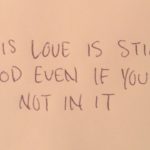 IS LOVE IS
EVEN IF YOU
NOT IN IT